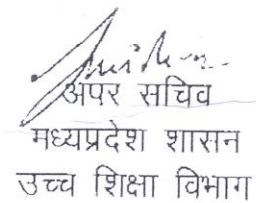 अपर सचिव
मध्यप्रदेश शासन
उच्च शिक्षा विभाग